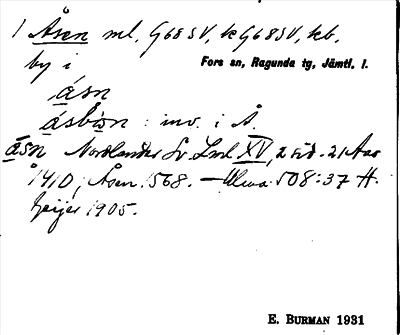 1 Åsen ml, G68SV, k G68SV, kb.
by i Fors sn, Ragunda tg, Jämtl. l.
ásn
ásbi̇sn : inv. i Å.
ásn Nordlander Sv. Lml XV, 2 sid. 21 Aas
1410, Åsen 1568. — Ulma 508:37 H.
Geijer 1905.
E. BURMAN 1931